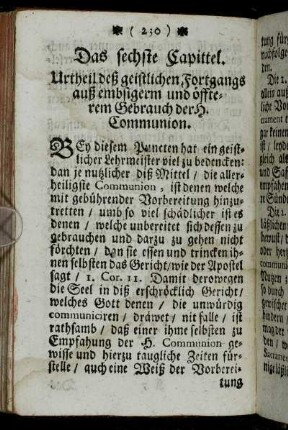 ( 230 )
Das sechste Capittel.
Urtheil deß geistlichen Fortgangs
auß embsigerm und öffte-
rem Gebrauch der H.
Communion.
BEy diesem Puncten hat ein geist-
licher Lehrmeister viel zu bedencken:
dan je nutzlicher diß Mittel / die aller-
heiligste Communion, ist denen welche
mit gebührender Vorbereitung hinzu-
tretten / umb so viel schädlicher ist es
denen / welche unbereitet sich dessen zu
gebrauchen und darzu zu gehen nicht
förchten / dan sie essen und trincken ih-
nen selbsten das Gericht / wie der Apostel
sagt / 1. Cor. 11. Damit derowegen
die Seel in diß erschröcklich Gericht /
welches Gott denen / die unwürdig
communiciren / dräwet / nit falle / ist
rathsamb / daß einer ihme selbsten zu
Empfahung der H. Communion ge-
wisse und hierzu taugliche Zeiten für-
stelle / auch eine Weiß der Vorberei-
tung